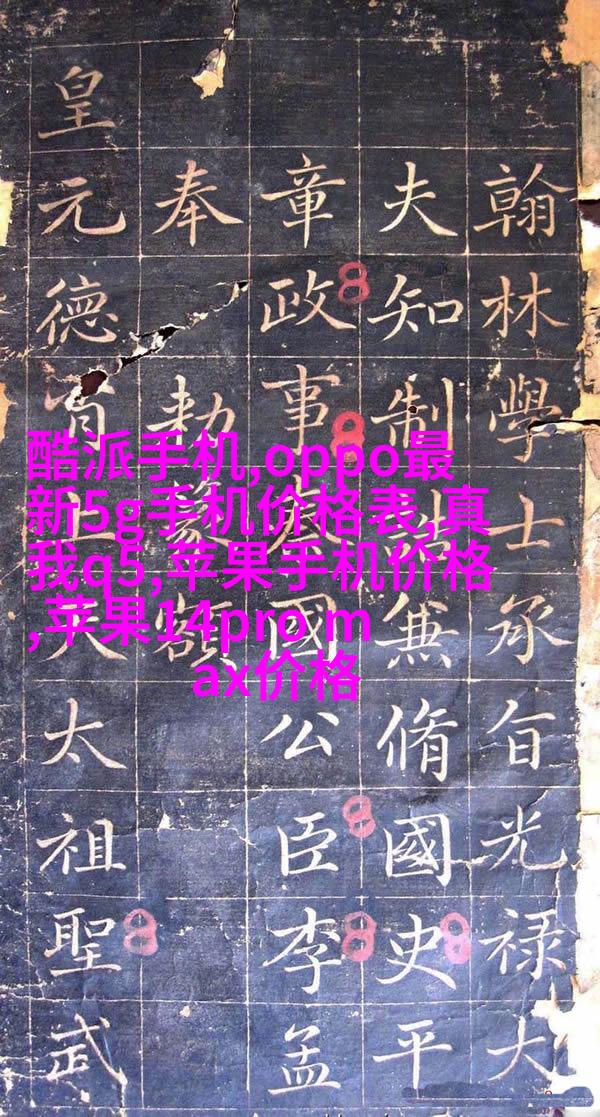 翰林學士承旨光禄大
夫知制誥兼脩國史平
章政事秦國公臣李孟
奉勑篆額
皇元德上太祖聖武
酷派手机,oppo最
新5g手机价格表,真
我q5,苹果手机价格
,苹果14pro m
ax价格